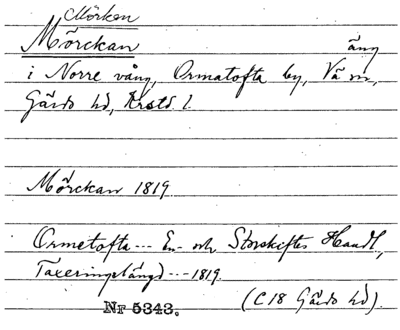 Mörken
Mörckan äng
i Norre vång, Ormatofta by, Vä sn,
Gärds hd, Krstd. l.
Mörckan 1819
Ormetofta --- En- och Storskiftes Handl.,
Taxeringslängd --- 1819.
Nr 5343. (C18 Gärds hd).